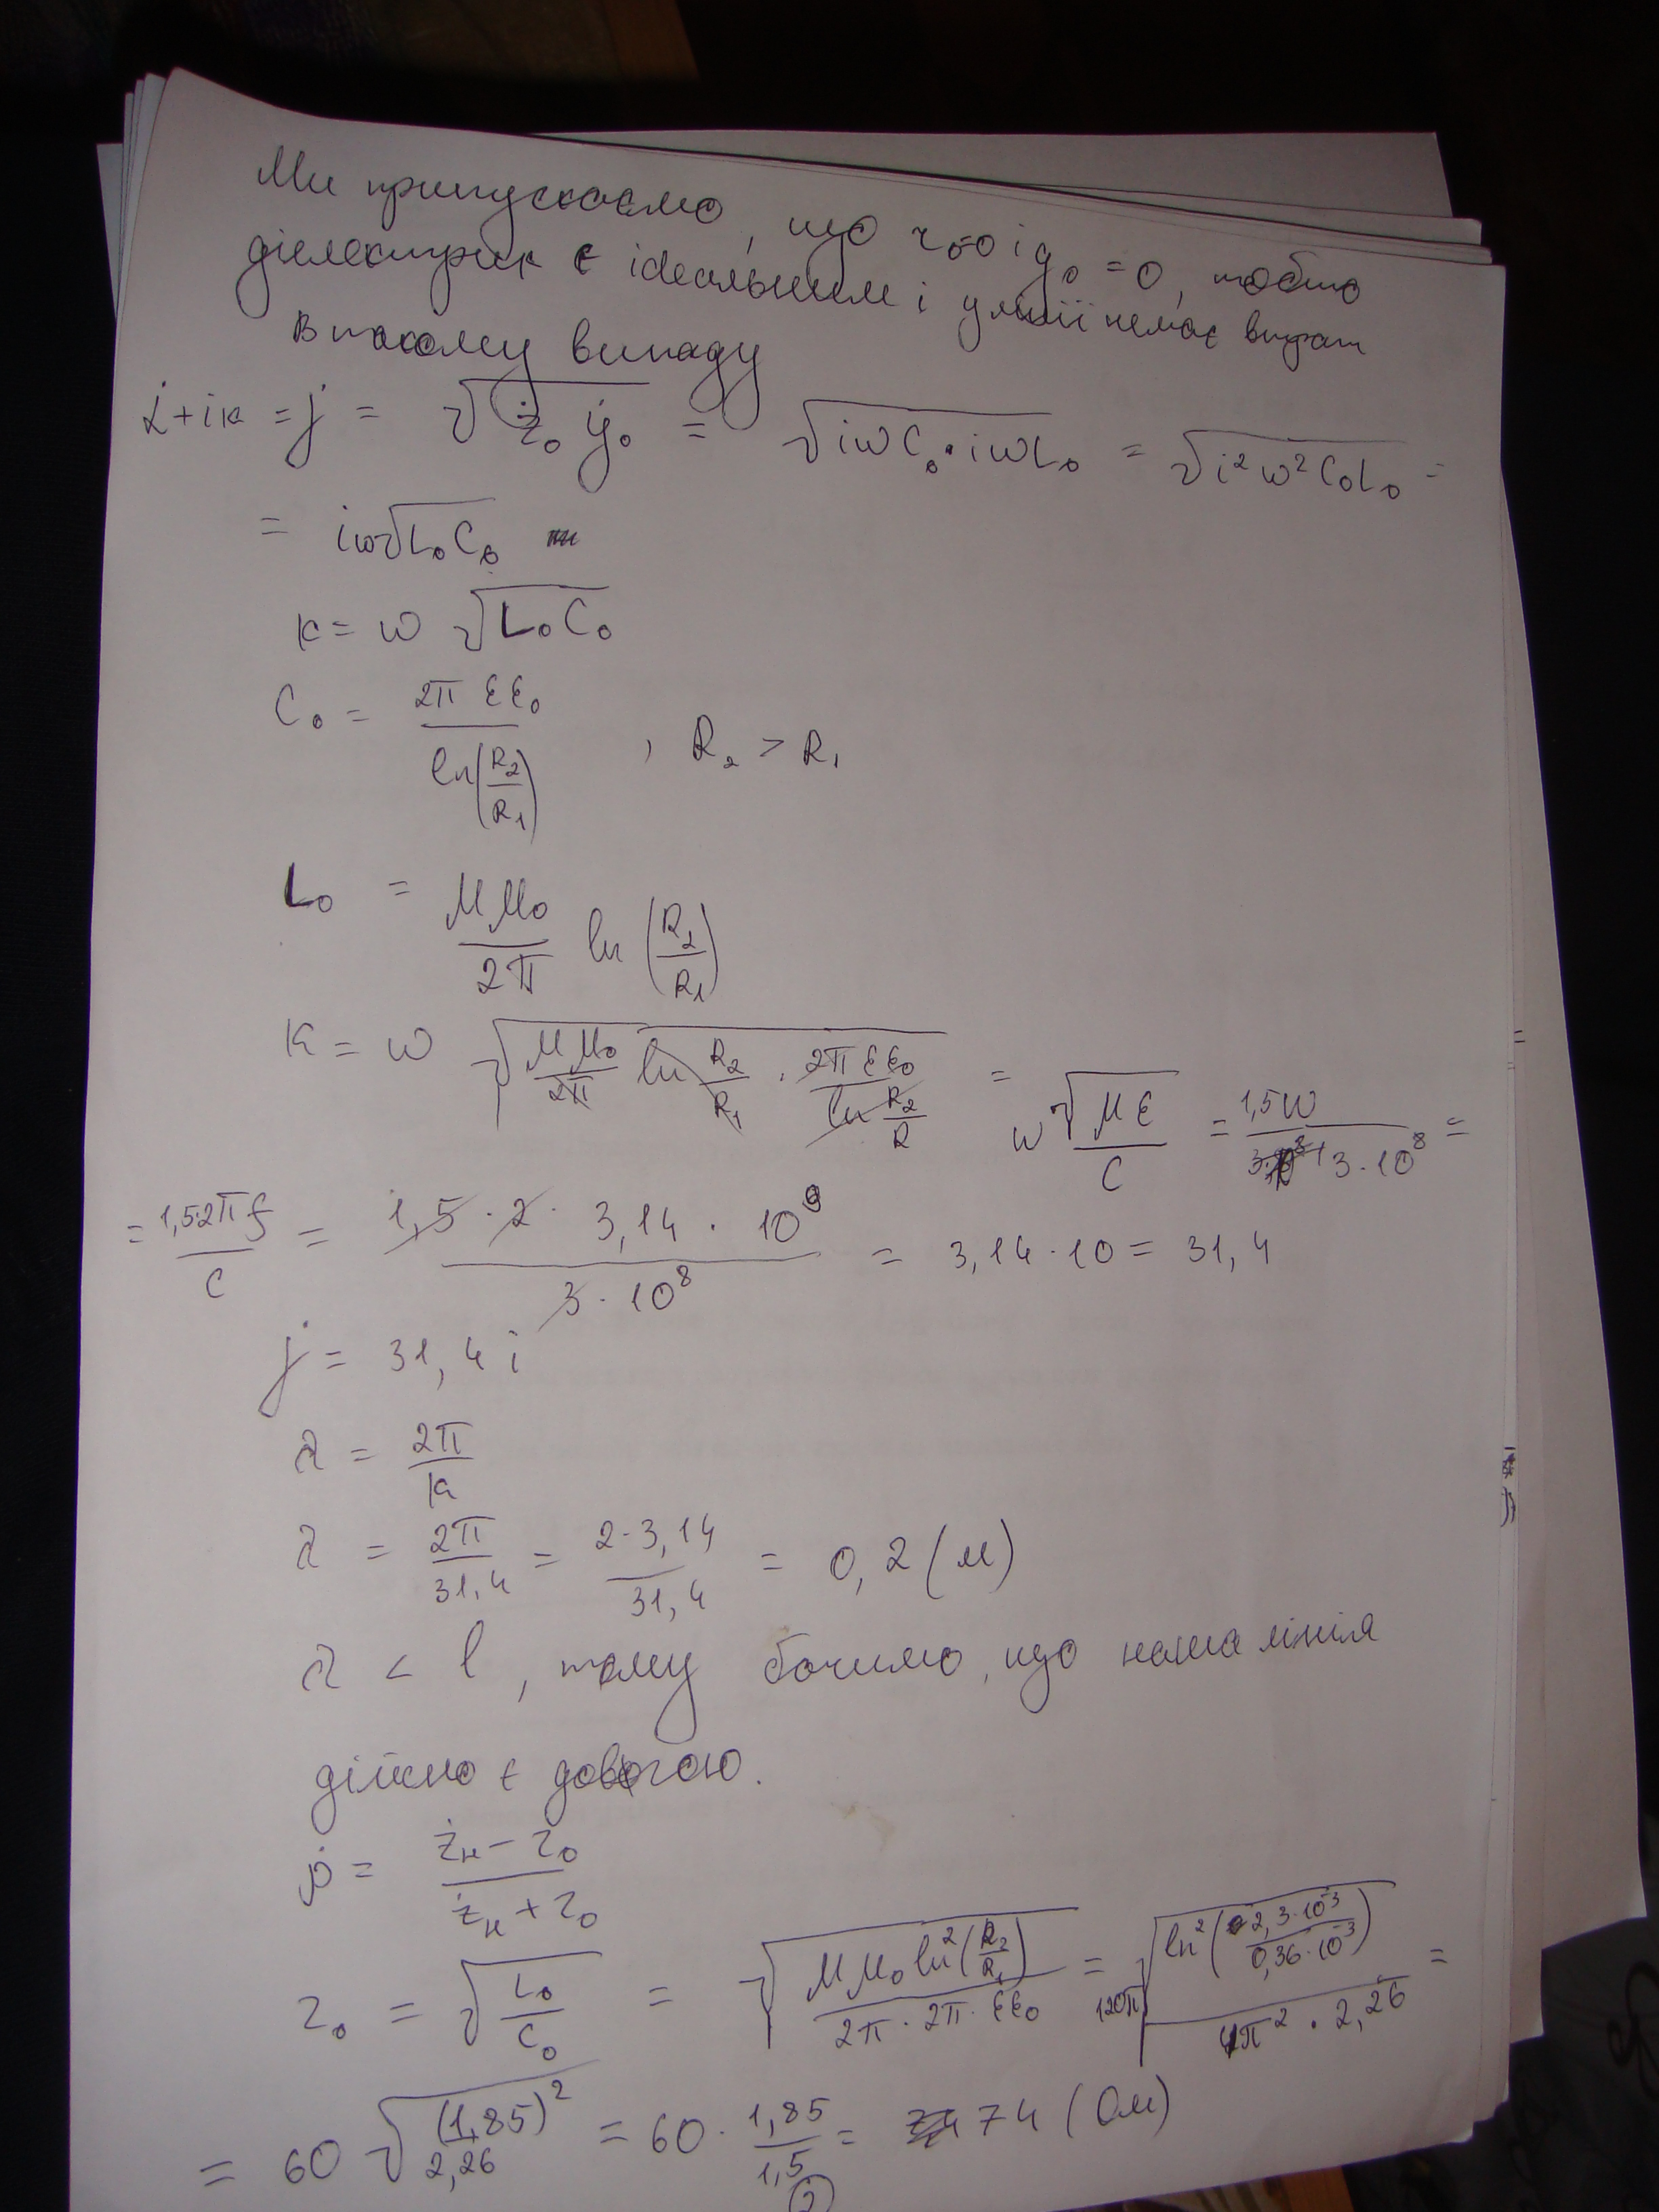 Ми припускаємо, що r₀=0 і g₀ = 0, тобто
діелектрик є ідеальним і у лінії немає втрат
В такому випаду
α̇ + iк = j̇ = √(ż₀ ẏ₀) = √(iωC₀ · iωL₀) = √(i²ω²C₀L₀) =
= iω√(L₀C₀)
к = ω √(L₀C₀)
C₀ = 2π εε₀ / ln(R₂/R₁) , R₂ > R₁
L₀ = μμ₀ / 2π ln (R₂/R₁)
к = ω √(μμ₀/2π ln R₂/R₁ · 2π εε₀ / ln R₂/R) = ω √(με)/c = 1,5ω / 3·10⁸ =
= 1,5·2πf / c = 1,5 · 2 · 3,14 · 10⁹ / 3 · 10⁸ = 3,14 · 10 = 31,4
j̇ = 31,4 i
λ = 2π / к
λ = 2π / 31,4 = 2·3,14 / 31,4 = 0,2 (м)
λ < l, тому бачимо, що наша лінія
дійсно є довгою.
ρ̇ = (żн − z₀) / (żн + z₀)
z₀ = √(L₀/C₀) = √(μμ₀ ln²(R₂/R₁) / 2π · 2π · εε₀) = 120π √(ln²(2,3·10⁻³ / 0,36·10⁻³) / 4π² · 2,26) =
= 60 √((1,85)² / 2,26) = 60 · 1,85 / 1,5 = 74 (Ом)
2